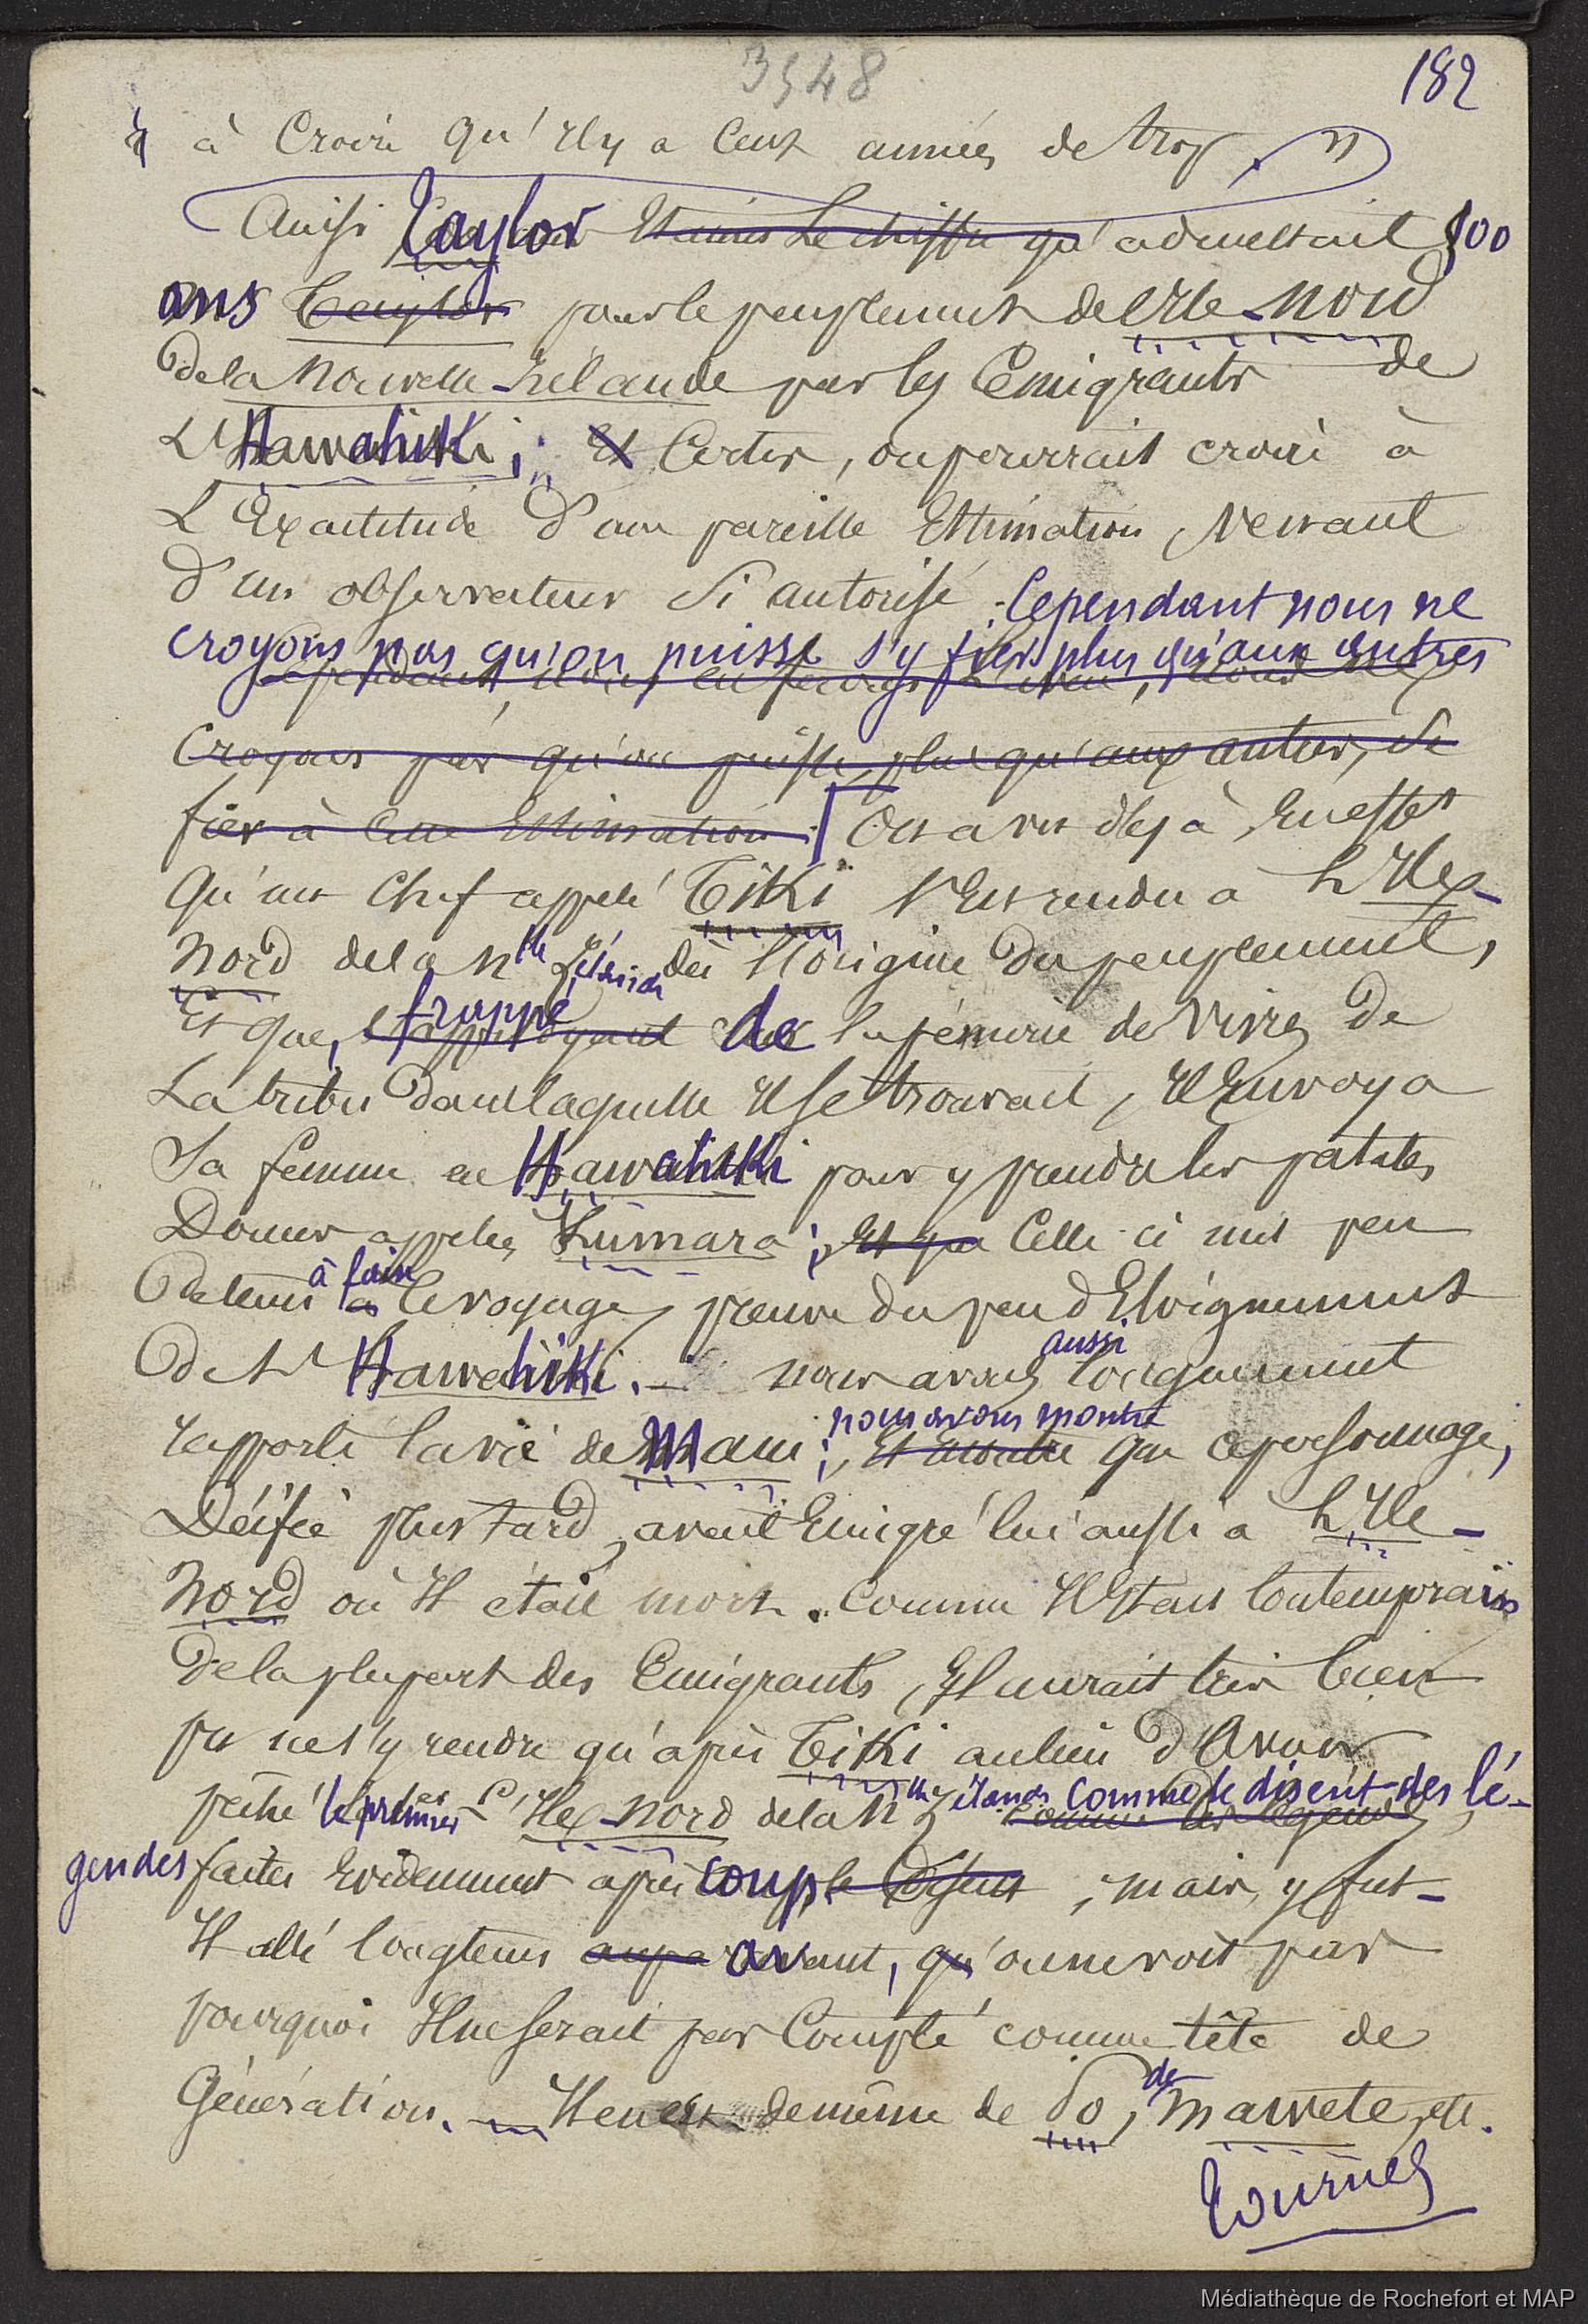 3548
182
à croire qu'il y a cent années de trop.
Ainsi Taylor Etaines le chiffre qu'admettait 800
ans Taylor pour le peuplement de l'Ile-nord
de la Nouvelle-Zélande par les Emigrants de
L'Hawahiki; Et Certes, on pourrait croire à
L'Exactitude d'une pareille Estimation, venant
d'un observateur si autorisé. Cependant nous ne
croyons pas qu'on puisse s'y fier plus qu'aux autres
Cependant,
Croyons pas qu'on puisse, plus qu'aux autres, se
fier à cette Estimation: On a vu déjà, En effet
Qu'un Chef appelé Tiki s'est rendu à L'Ile-
Nord de la Nlle Zélande dès l'origine du peuplement,
Et que, frappé de la pénurie de vivres de
La tribu dans laquelle Il se trouvait, Il Envoya
Sa femme en Hawahiki pour y prendre les patates
Douces appelées Kumara; Et que Celle-ci mit peu
de tems à faire ce voyage, preuve du peu d'Eloignement
De L'Hawahiki. - nous avons aussi longuement
rapporté la vie de Maui; nous avons montré Et montré que ce personnage,
Déifié plus tard, avait Emigré lui aussi à L'Ile-
Nord où Il était mort. Comme Il Etait Contemporain
De la plupart des Emigrants, Il aurait très bien
pu ne s'y rendre qu'après Tiki au lieu d'Avoir
pêché le premier L'Ile-Nord de la Nlle Zélande comme le disent des lé-
comme les légendes
gendes faites Evidemment après coup, le disent; mais, y fut-
Il allé longtems auparavant, qu'on ne voit pas
pourquoi Il ne serait pas Compté comme tête de
Génération. - Il en est de même de Po, de Mawete, etc.
Tournez
Médiathèque de Rochefort et MAP